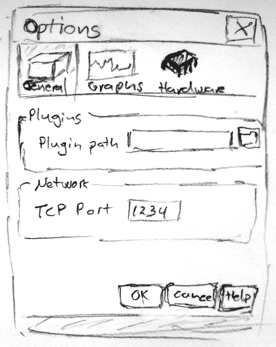 Options X
General Graphs Hardware
Plugins
Plugin path
Network
TCP Port 1234
OK Cancel Help